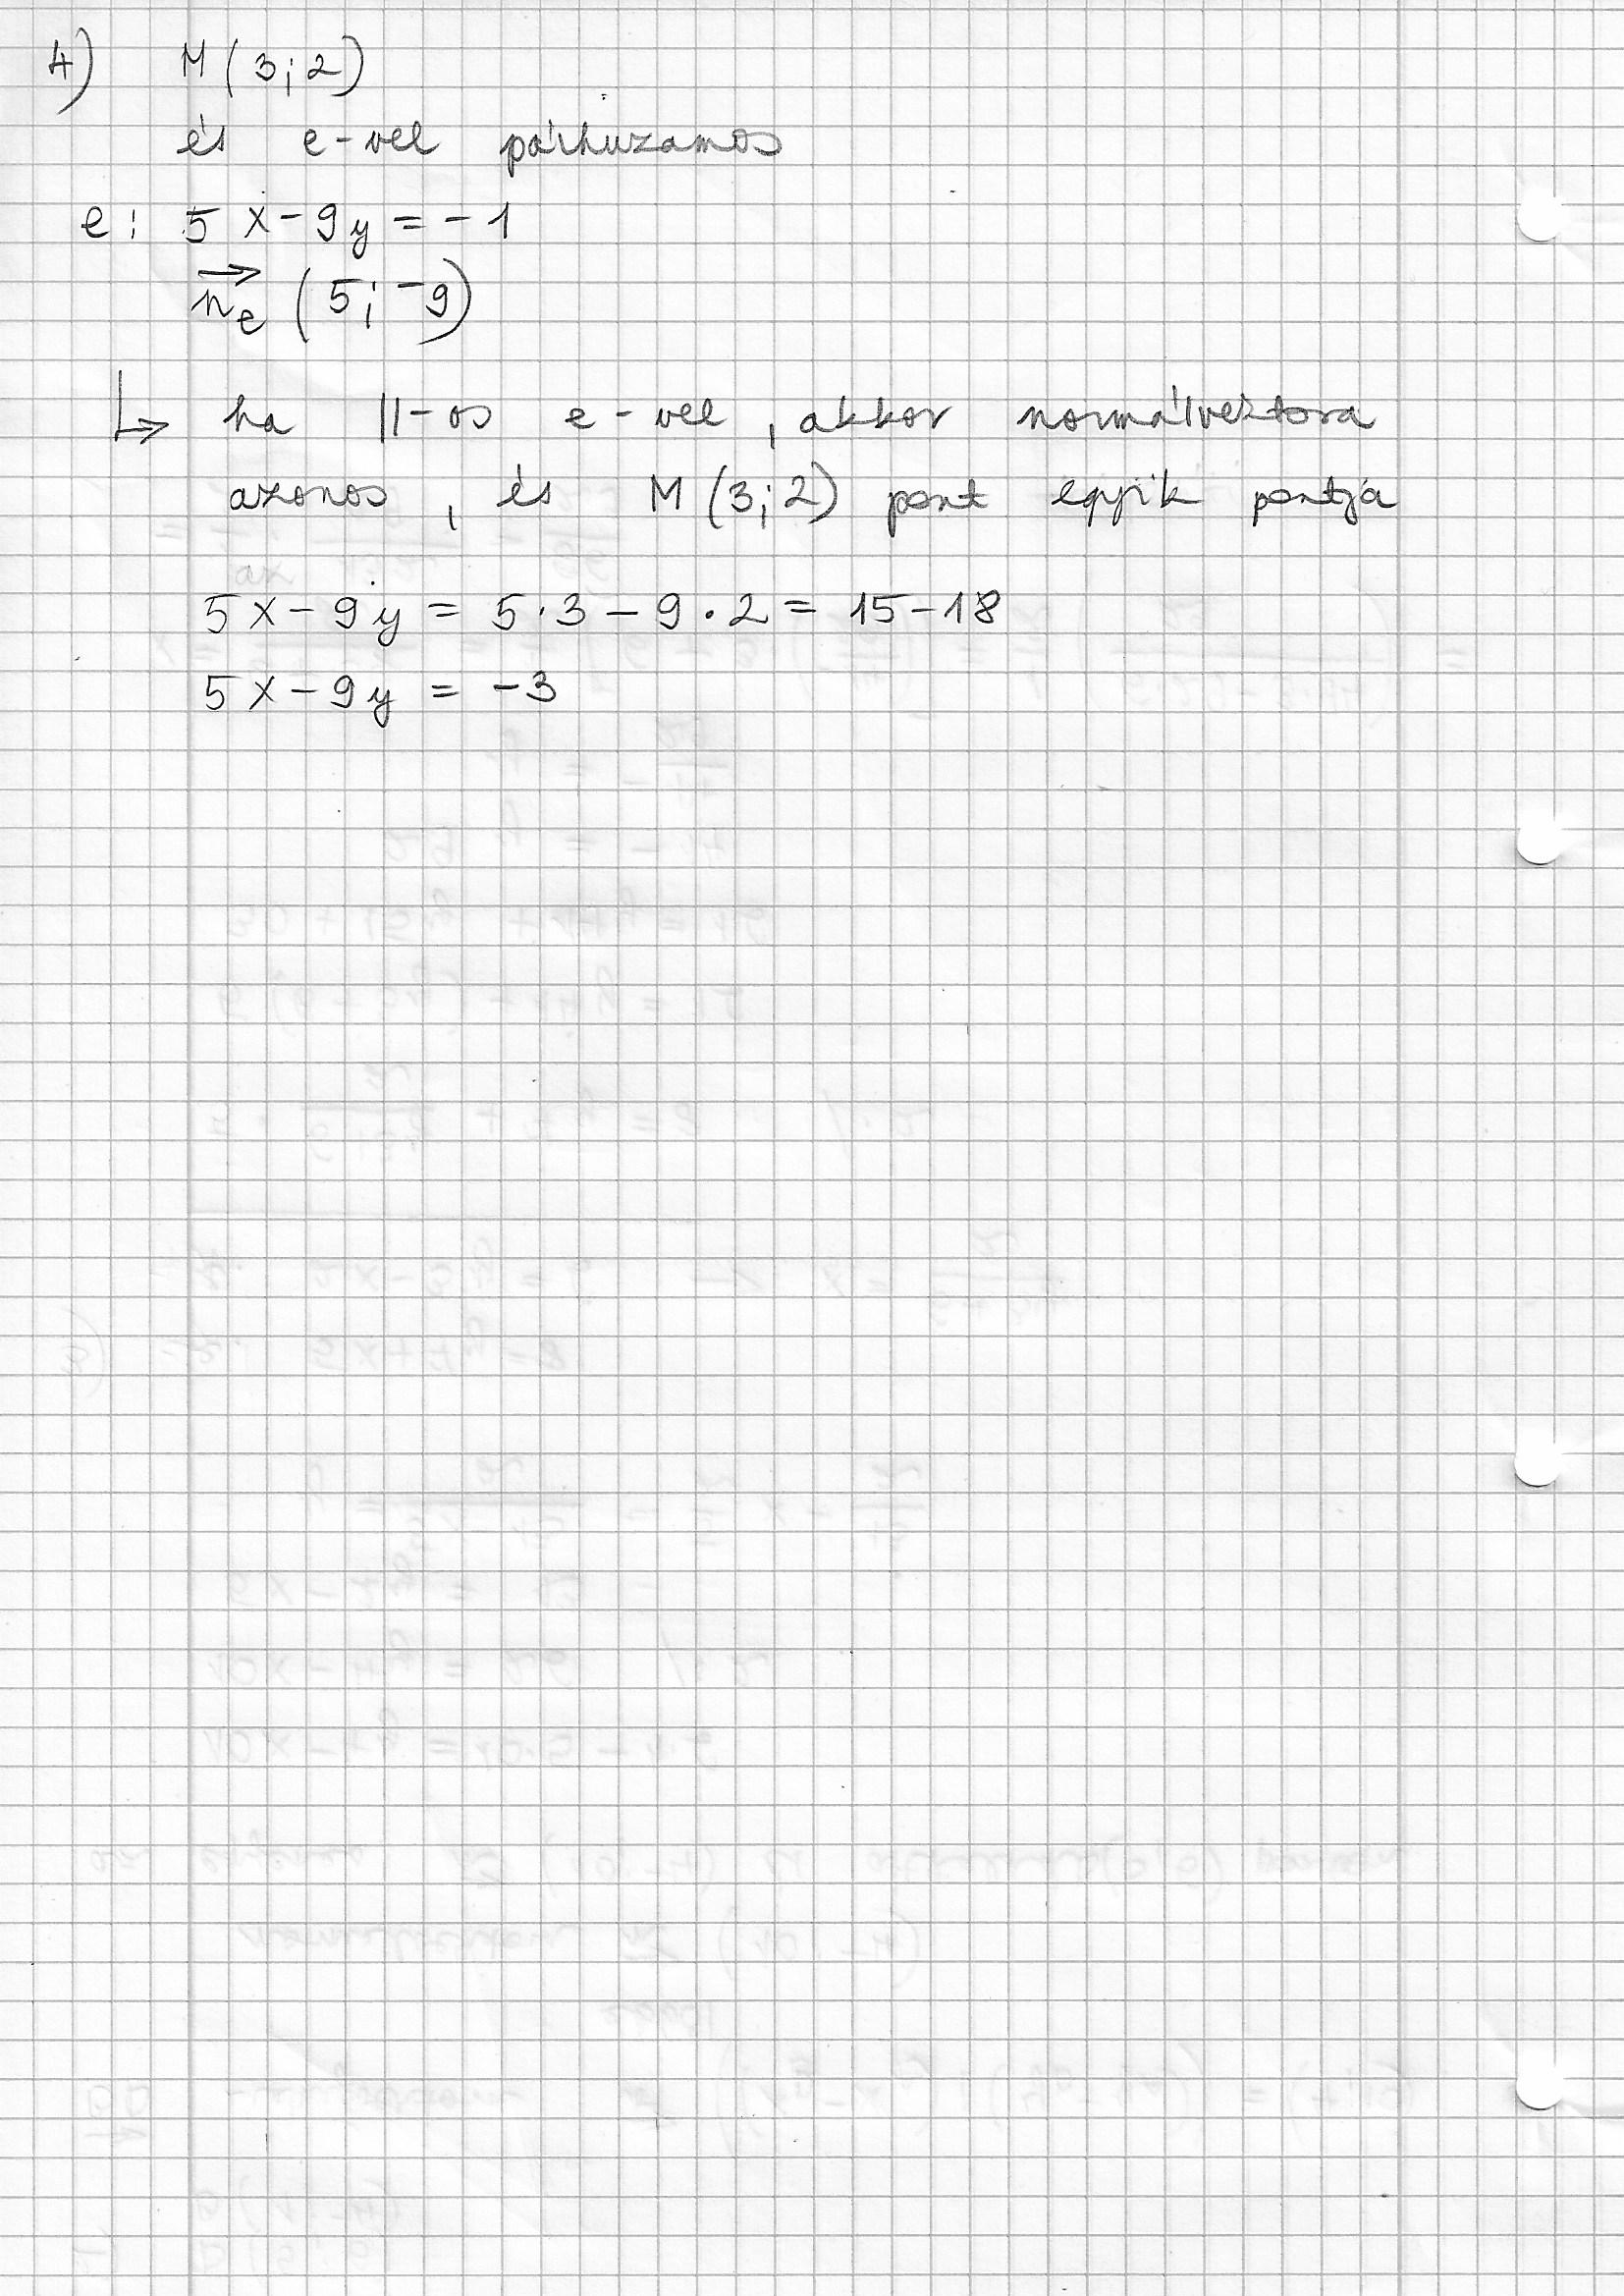 4) M(3;2)
és e-vel párhuzamos
e: 5x-9y=-1
n⃗e (5;-9)
↳ ha ||-os e-vel, akkor normálvektora
azonos, és M(3;2) pont egyik pontja
5x-9y = 5·3-9·2 = 15-18
5x-9y = -3